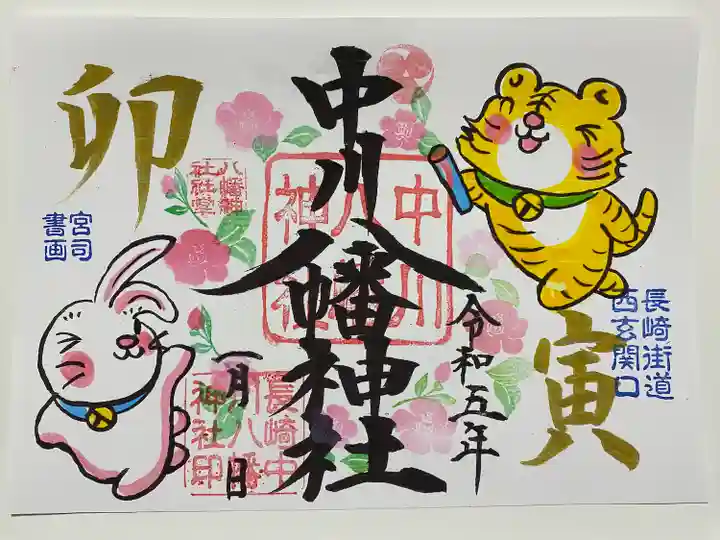 卯
寅
中川八幡神社
令和五年
一月 日
長崎街道
西玄関口
宮司
書画
中川
八幡
神社
八幡神
社社掌
長崎中
川八幡
神社印